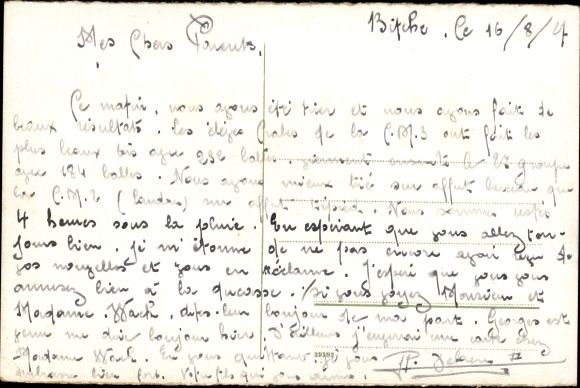 Bitche, le 16/8/
Mes Chers Parents,
Ce matin, nous avons été tirer et nous avons fait de
beaux résultats. Les élèves de la C.M.3 ont fait les
plus beaux avec 232 balles, viennent ensuite le groupe
avec 184 balles. Nous avons mieux tiré sur affut que
la C.M.2 sur affut trépied. Nous sommes restés
4 heures sous la pluie. En espérant que vous allez tou-
jours bien. Je m'étonne de ne pas encore avoir reçu de
vos nouvelles et vous en réclame. J'espère que vous vous
amusez bien à la ducasse. Si vous voyez Monsieur et
Madame Wach, dites-leur bonjour de ma part. Georges est
venu me dire bonjour hier. D'ailleurs j'enverrai une carte chez
Madame Wach. En vous quittant je vous
embrasse bien fort. Votre fils qui vous aime.